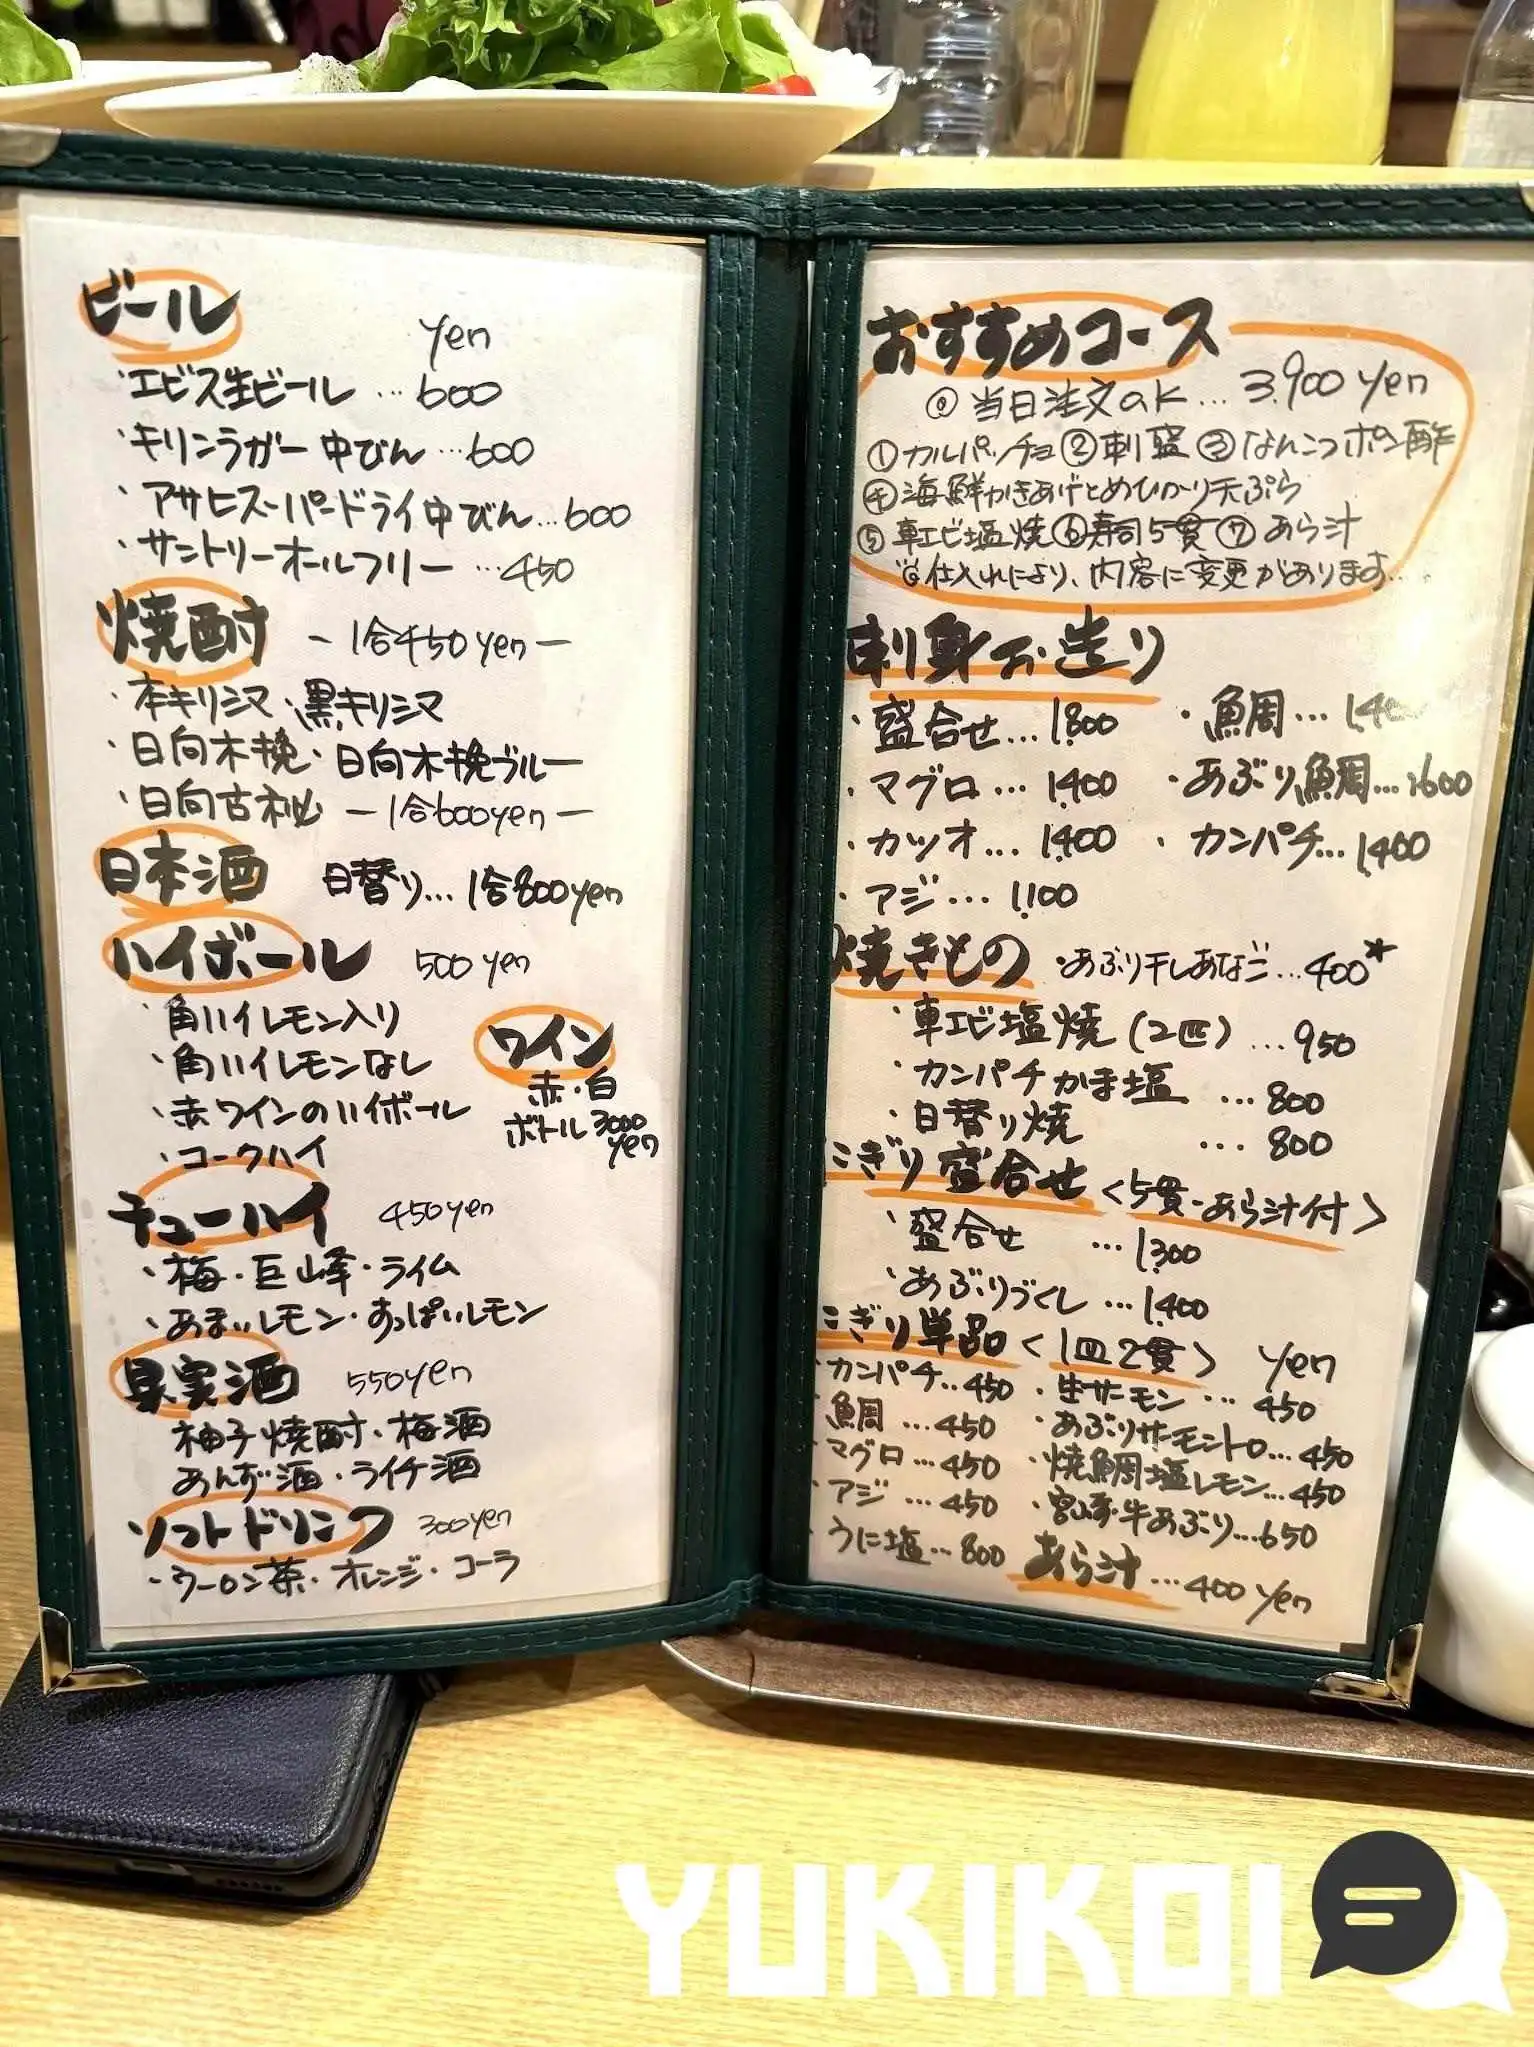 ビール
yen
・エビス生ビール…600
・キリンラガー中びん…600
・アサヒスーパードライ中びん…600
・サントリーオールフリー…450
焼酎 －1合450yen－
・本キリシマ・黒キリシマ
・日向木挽・日向木挽ブルー
・日向古秘 －1合600yen－
日本酒 日替り…1合800yen
ハイボール 500yen
・角ハイレモン入り
・角ハイレモンなし
・赤ワインのハイボール
・コークハイ
ワイン
赤・白
ボトル3000
yen
チューハイ 450yen
・梅・巨峰・ライム
・あまいレモン・すっぱいレモン
果実酒 550yen
柚子焼酎・梅酒
あんず酒・ライチ酒
ソフトドリンク 300yen
・ウーロン茶・オレンジ・コーラ
おすすめコース
◎当日注文OK…3,900yen
①カルパッチョ②刺盛③なんこつポン酢
④海鮮かきあげとめひかり天ぷら
⑤車エビ塩焼⑥寿司5貫⑦あら汁
◎仕入れにより、内容に変更があります…
刺身お造り
・盛合せ…1,800 ・鯛…1,40
・マグロ…1,400 ・あぶり鯛…1,600
・カツオ…1,400 ・カンパチ…1,400
・アジ…1,100
焼きもの ・あぶり干しあなご…400*
・車エビ塩焼(2匹)…950
・カンパチかま塩…800
・日替り焼…800
にぎり盛合せ〈5貫・あら汁付〉
・盛合せ…1,300
・あぶりづくし…1,400
にぎり単品〈1皿2貫〉 yen
・カンパチ…450 ・生サーモン…450
・鯛…450 ・あぶりサーモントロ…450
・マグロ…450 ・焼鯛塩レモン…450
・アジ…450 ・宮崎牛あぶり…650
・うに塩…800 あら汁…400yen
YUKIKOI